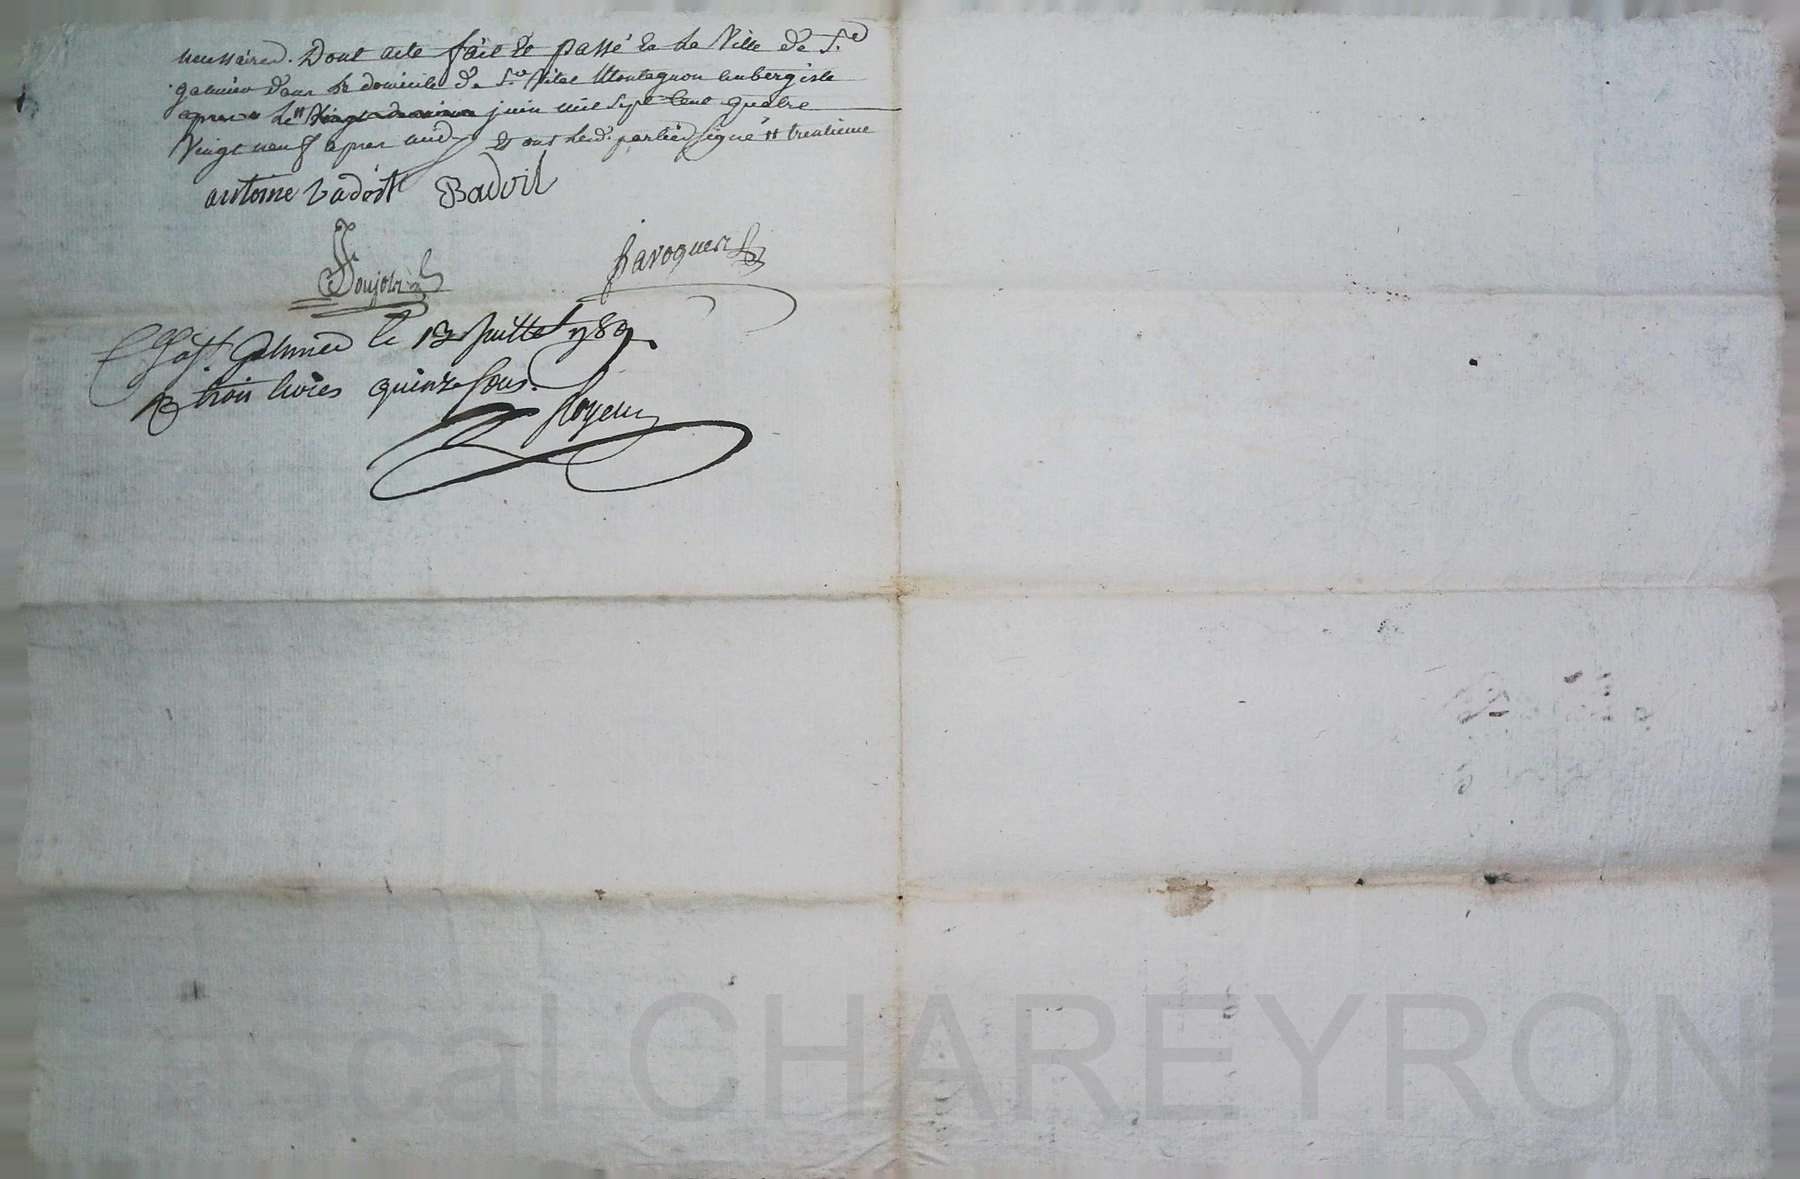 necessaires. Dont acte fait et passé en la Ville de S.t
galmier dans le domicile de S.r Vital Montagnon aubergiste
le juin mil sept cent quatre
Vingt neuf apres midi et ont lesd. parties signé # trentieme
antoine Badoil
Javogues
Galmier le 13 Juillet 1789.
trois livres quinze sous.
iscal CHAREYRON